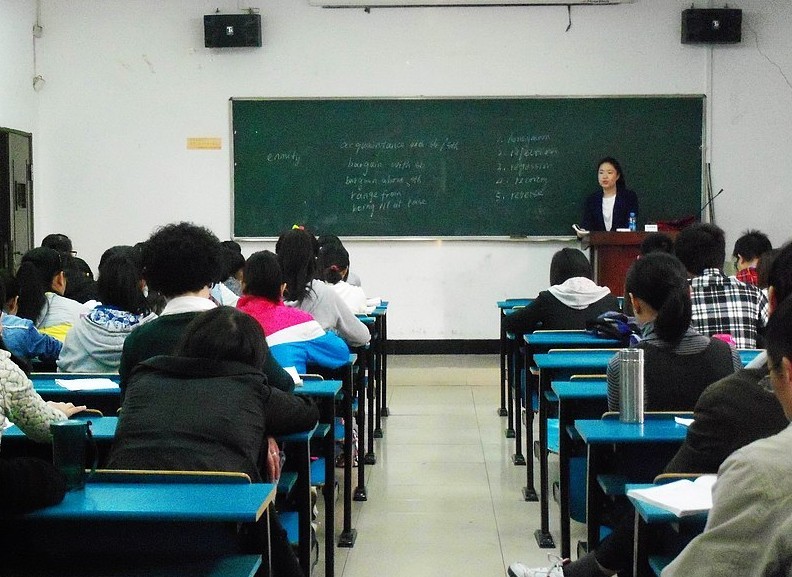 enmity
acquaintance with sb/sth
bargain with sb
bargain about sth
range from
being ill at ease
1. honeymoon
2. reflection
3. regression
4. recovery
5. reverse